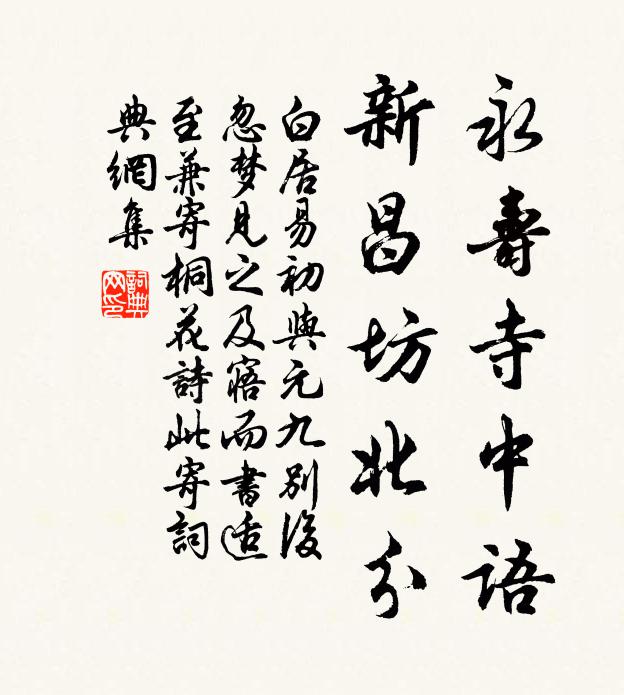 永壽寺中語
新昌坊北分
白居易初與元九別後
忽梦見之及寤而書适
至兼寄桐花詩此寄詞
典網集
詞典
网印